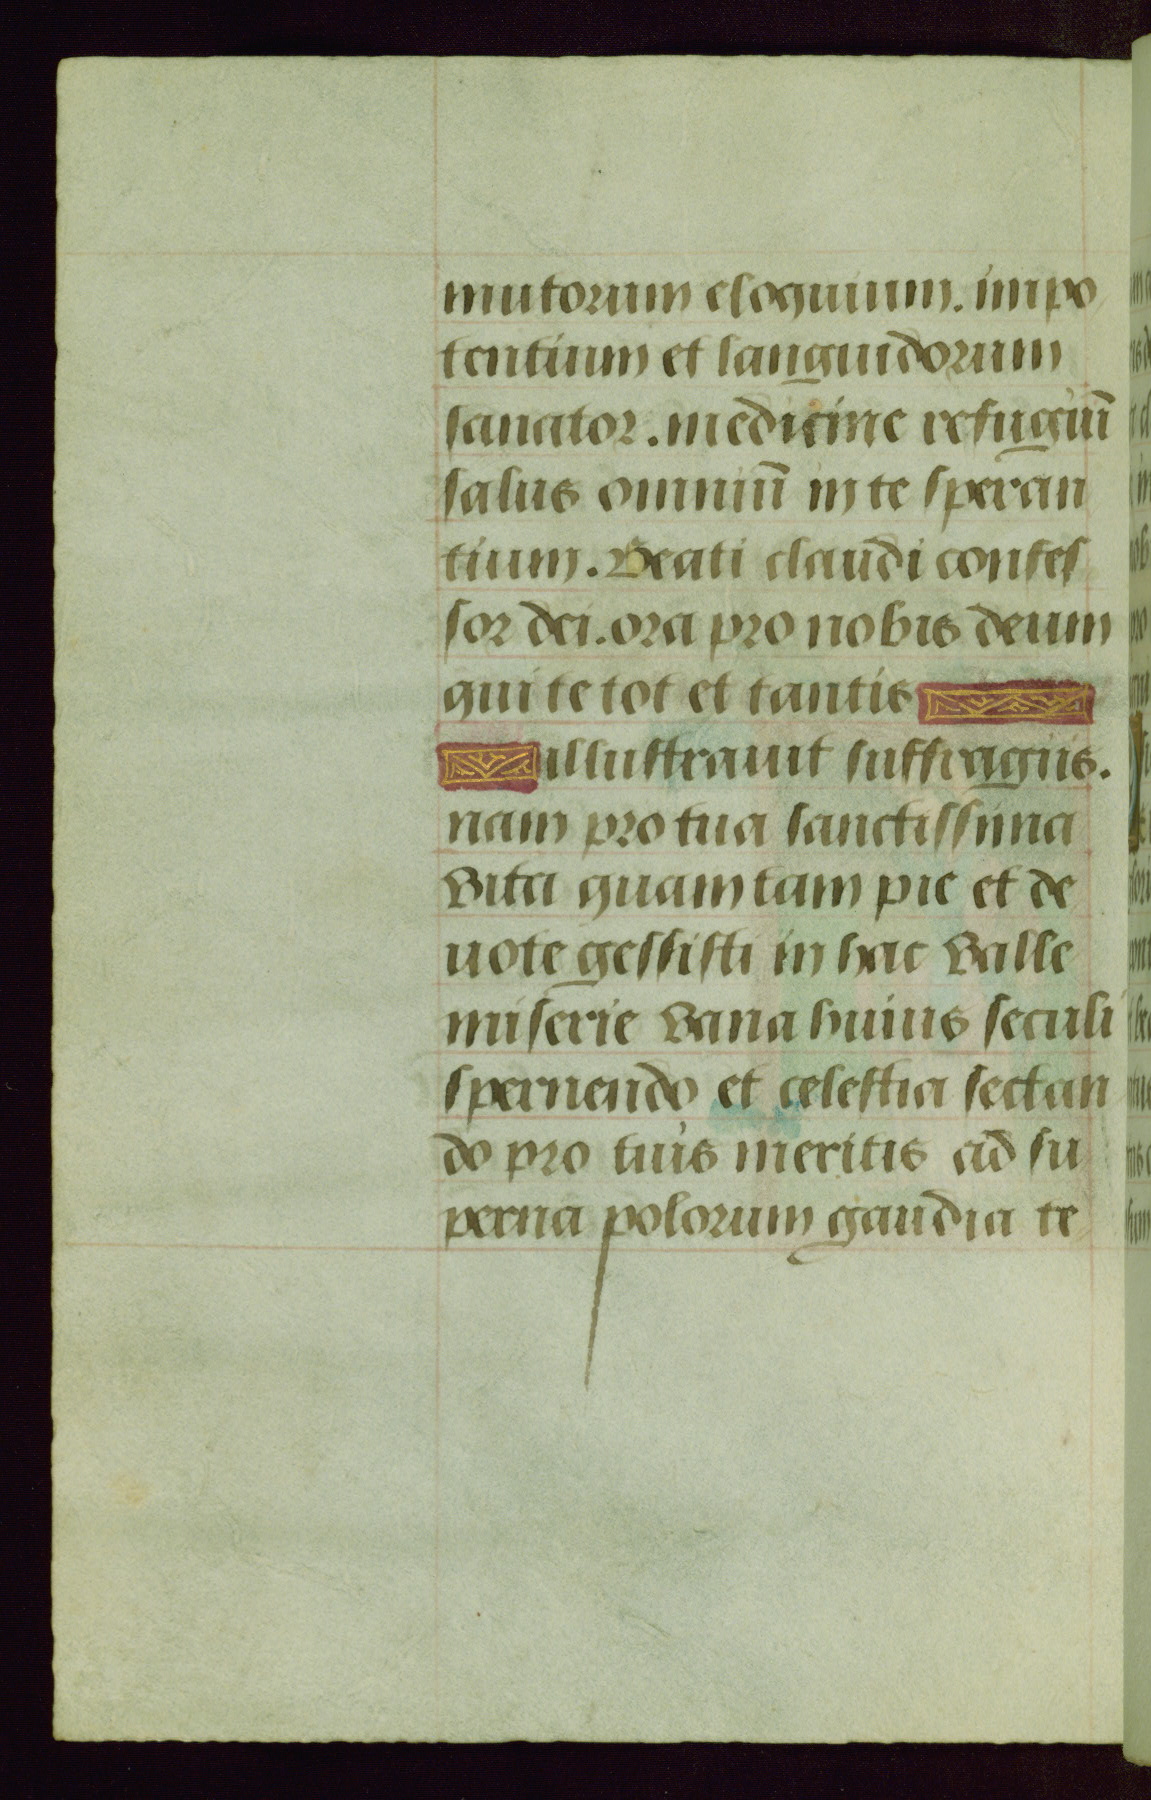 mutorum eloquium. impo
tentium et languidorum
sanator. medicine refugiū
salus omniū in te speran
tium. Beati claudi confes
sor dei. ora pro nobis deum
qui te tot et tantis
illustrauit suffragiis.
nam pro tua sanctissima
vita quam tam pie et de
uote gessisti in hac valle
miserie vana huius seculi
spernendo et celestia sectan
do pro tuis meritis ad su
perna polorum gaudia te